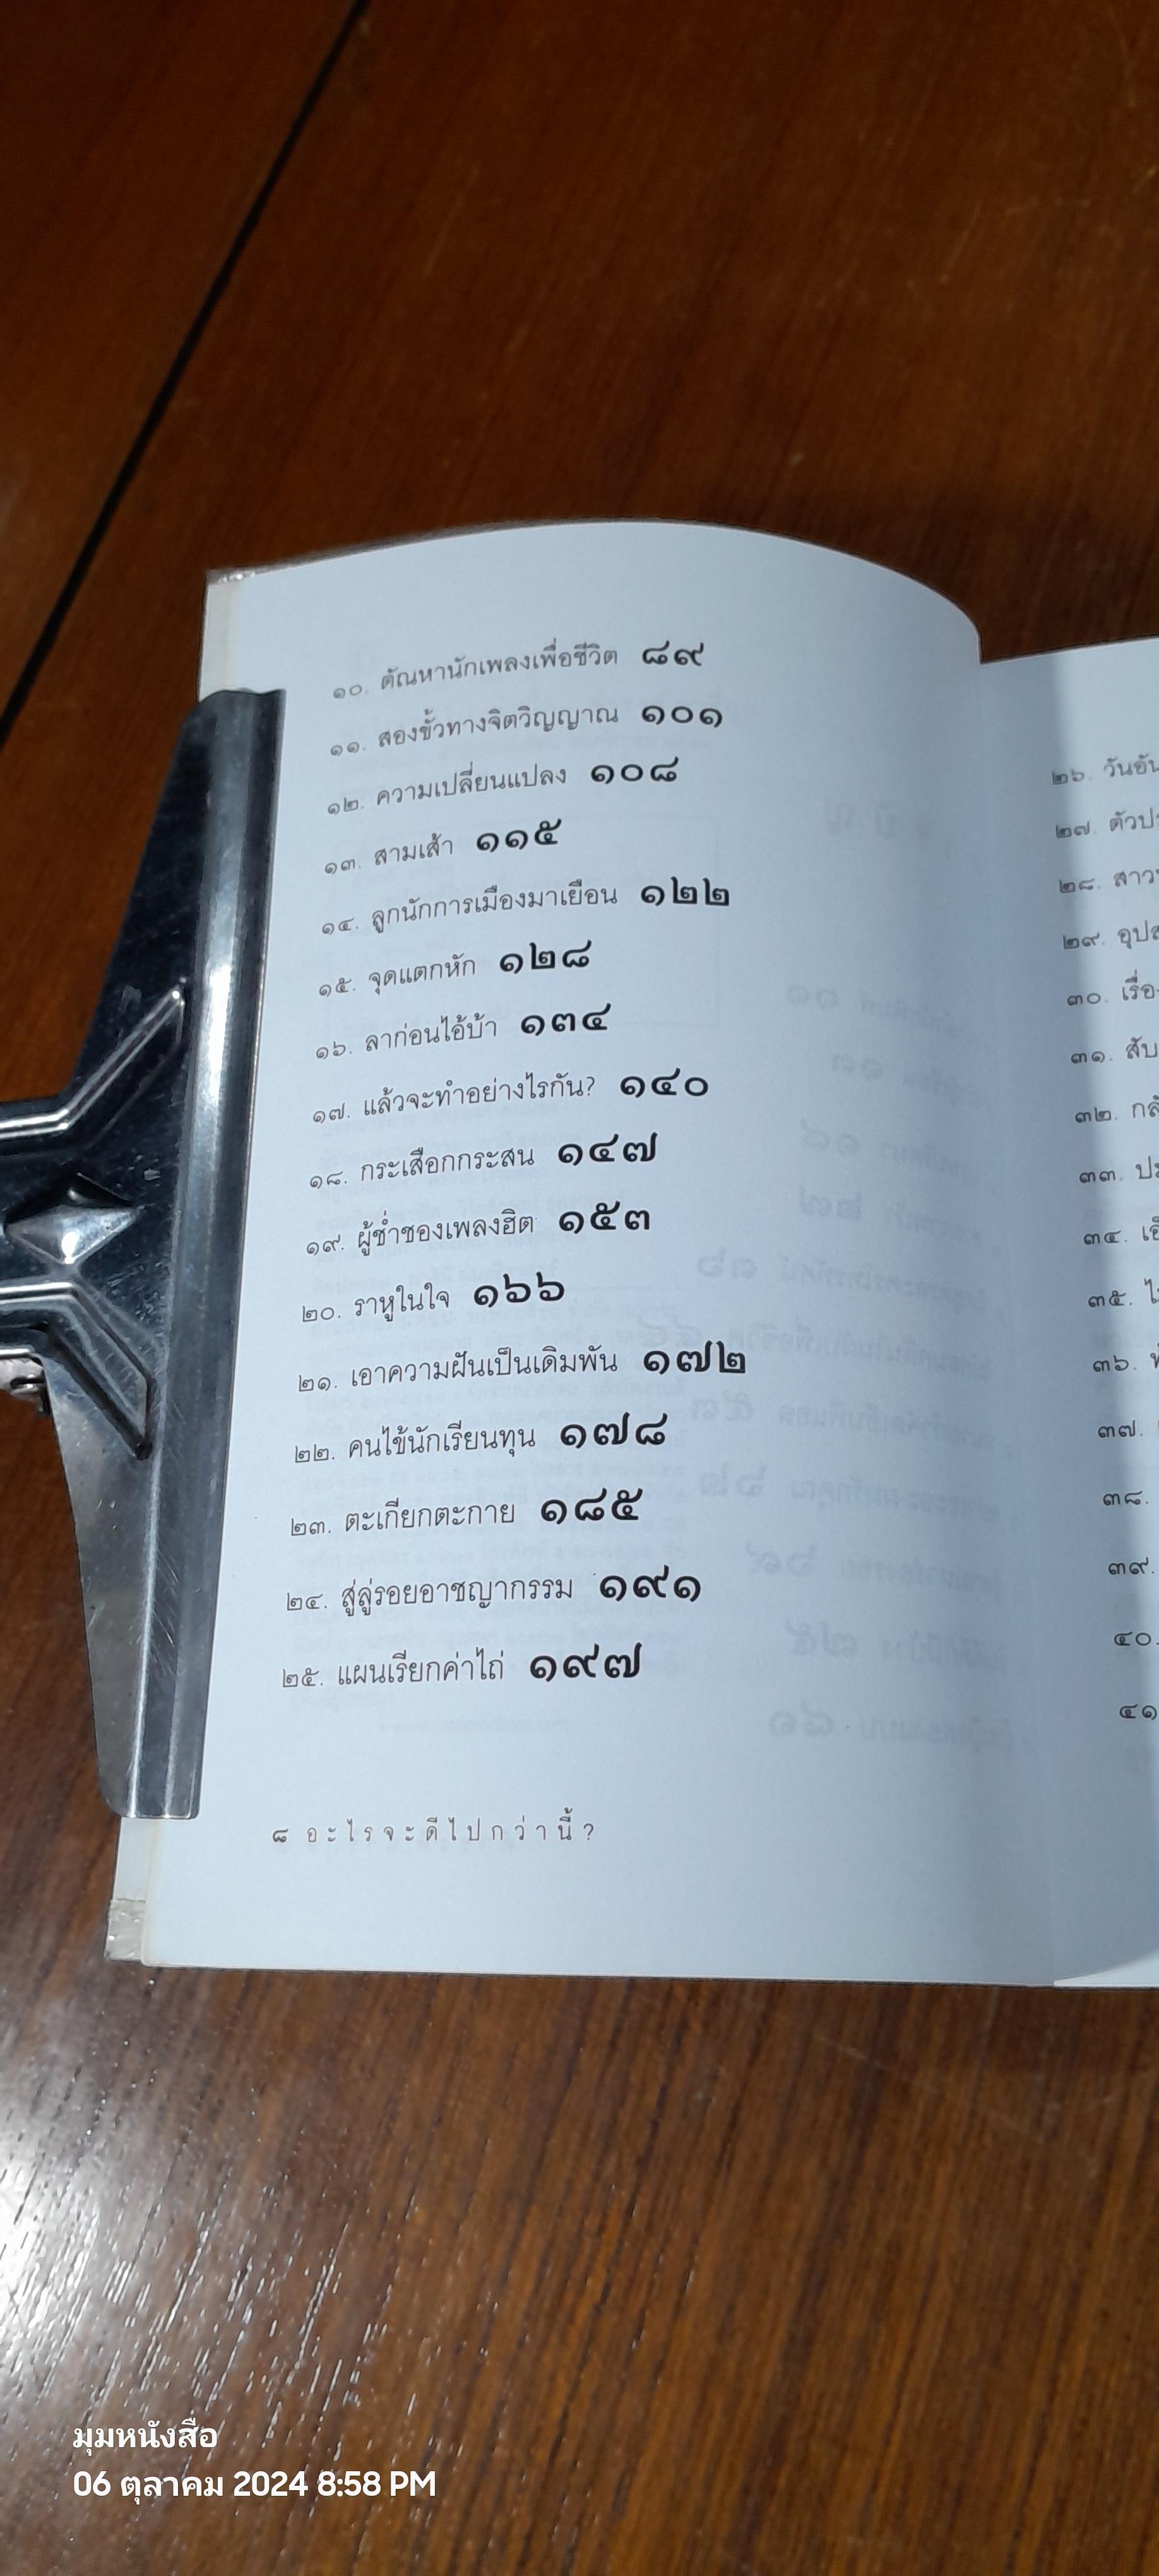 ๑๐. ตัณหานักเพลงเพื่อชีวิต ๘๙
๑๑. สองขั้วทางจิตวิญญาณ ๑๐๑
๑๒. ความเปลี่ยนแปลง ๑๐๘
๑๓. สามเส้า ๑๑๕
๑๔. ลูกนักการเมืองมาเยือน ๑๒๒
๑๕. จุดแตกหัก ๑๒๘
๑๖. ลาก่อนไอ้บ้า ๑๓๔
๑๗. แล้วจะทำอย่างไรกัน? ๑๔๐
๑๘. กระเสือกกระสน ๑๔๗
๑๙. ผู้ช่ำชองเพลงฮิต ๑๕๓
๒๐. ราหูในใจ ๑๖๖
๒๑. เอาความฝันเป็นเดิมพัน ๑๗๒
๒๒. คนไข้นักเรียนทุน ๑๗๘
๒๓. ตะเกียกตะกาย ๑๘๕
๒๔. สู่ลู่รอยอาชญากรรม ๑๙๑
๒๕. แผนเรียกค่าไถ่ ๑๙๗
๘ อะไรจะดีไปกว่านี้?
๒๖. วันอัน
๒๗. ตัวป
๒๘. สาว
๒๙. อุปส
๓๐. เรื่อง
๓๑. สับ
๓๒. กลั
๓๓. ปร
๓๔.
๓๕.
๓๖.
๓๗.
๓๘.
๓๙.
๔๐.
๔๑
มุมหนังสือ
06 ตุลาคม 2024 8:58 PM